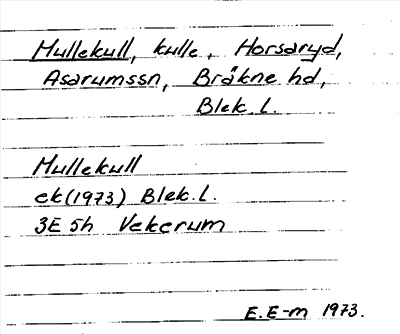 Mullekull, kulle, Horsaryd,
Asarumssn, Bräkne hd,
Blek. l.
Mullekull
ek(1973) Blek. l.
3E 5h Vekerum
E. E-m 1973.